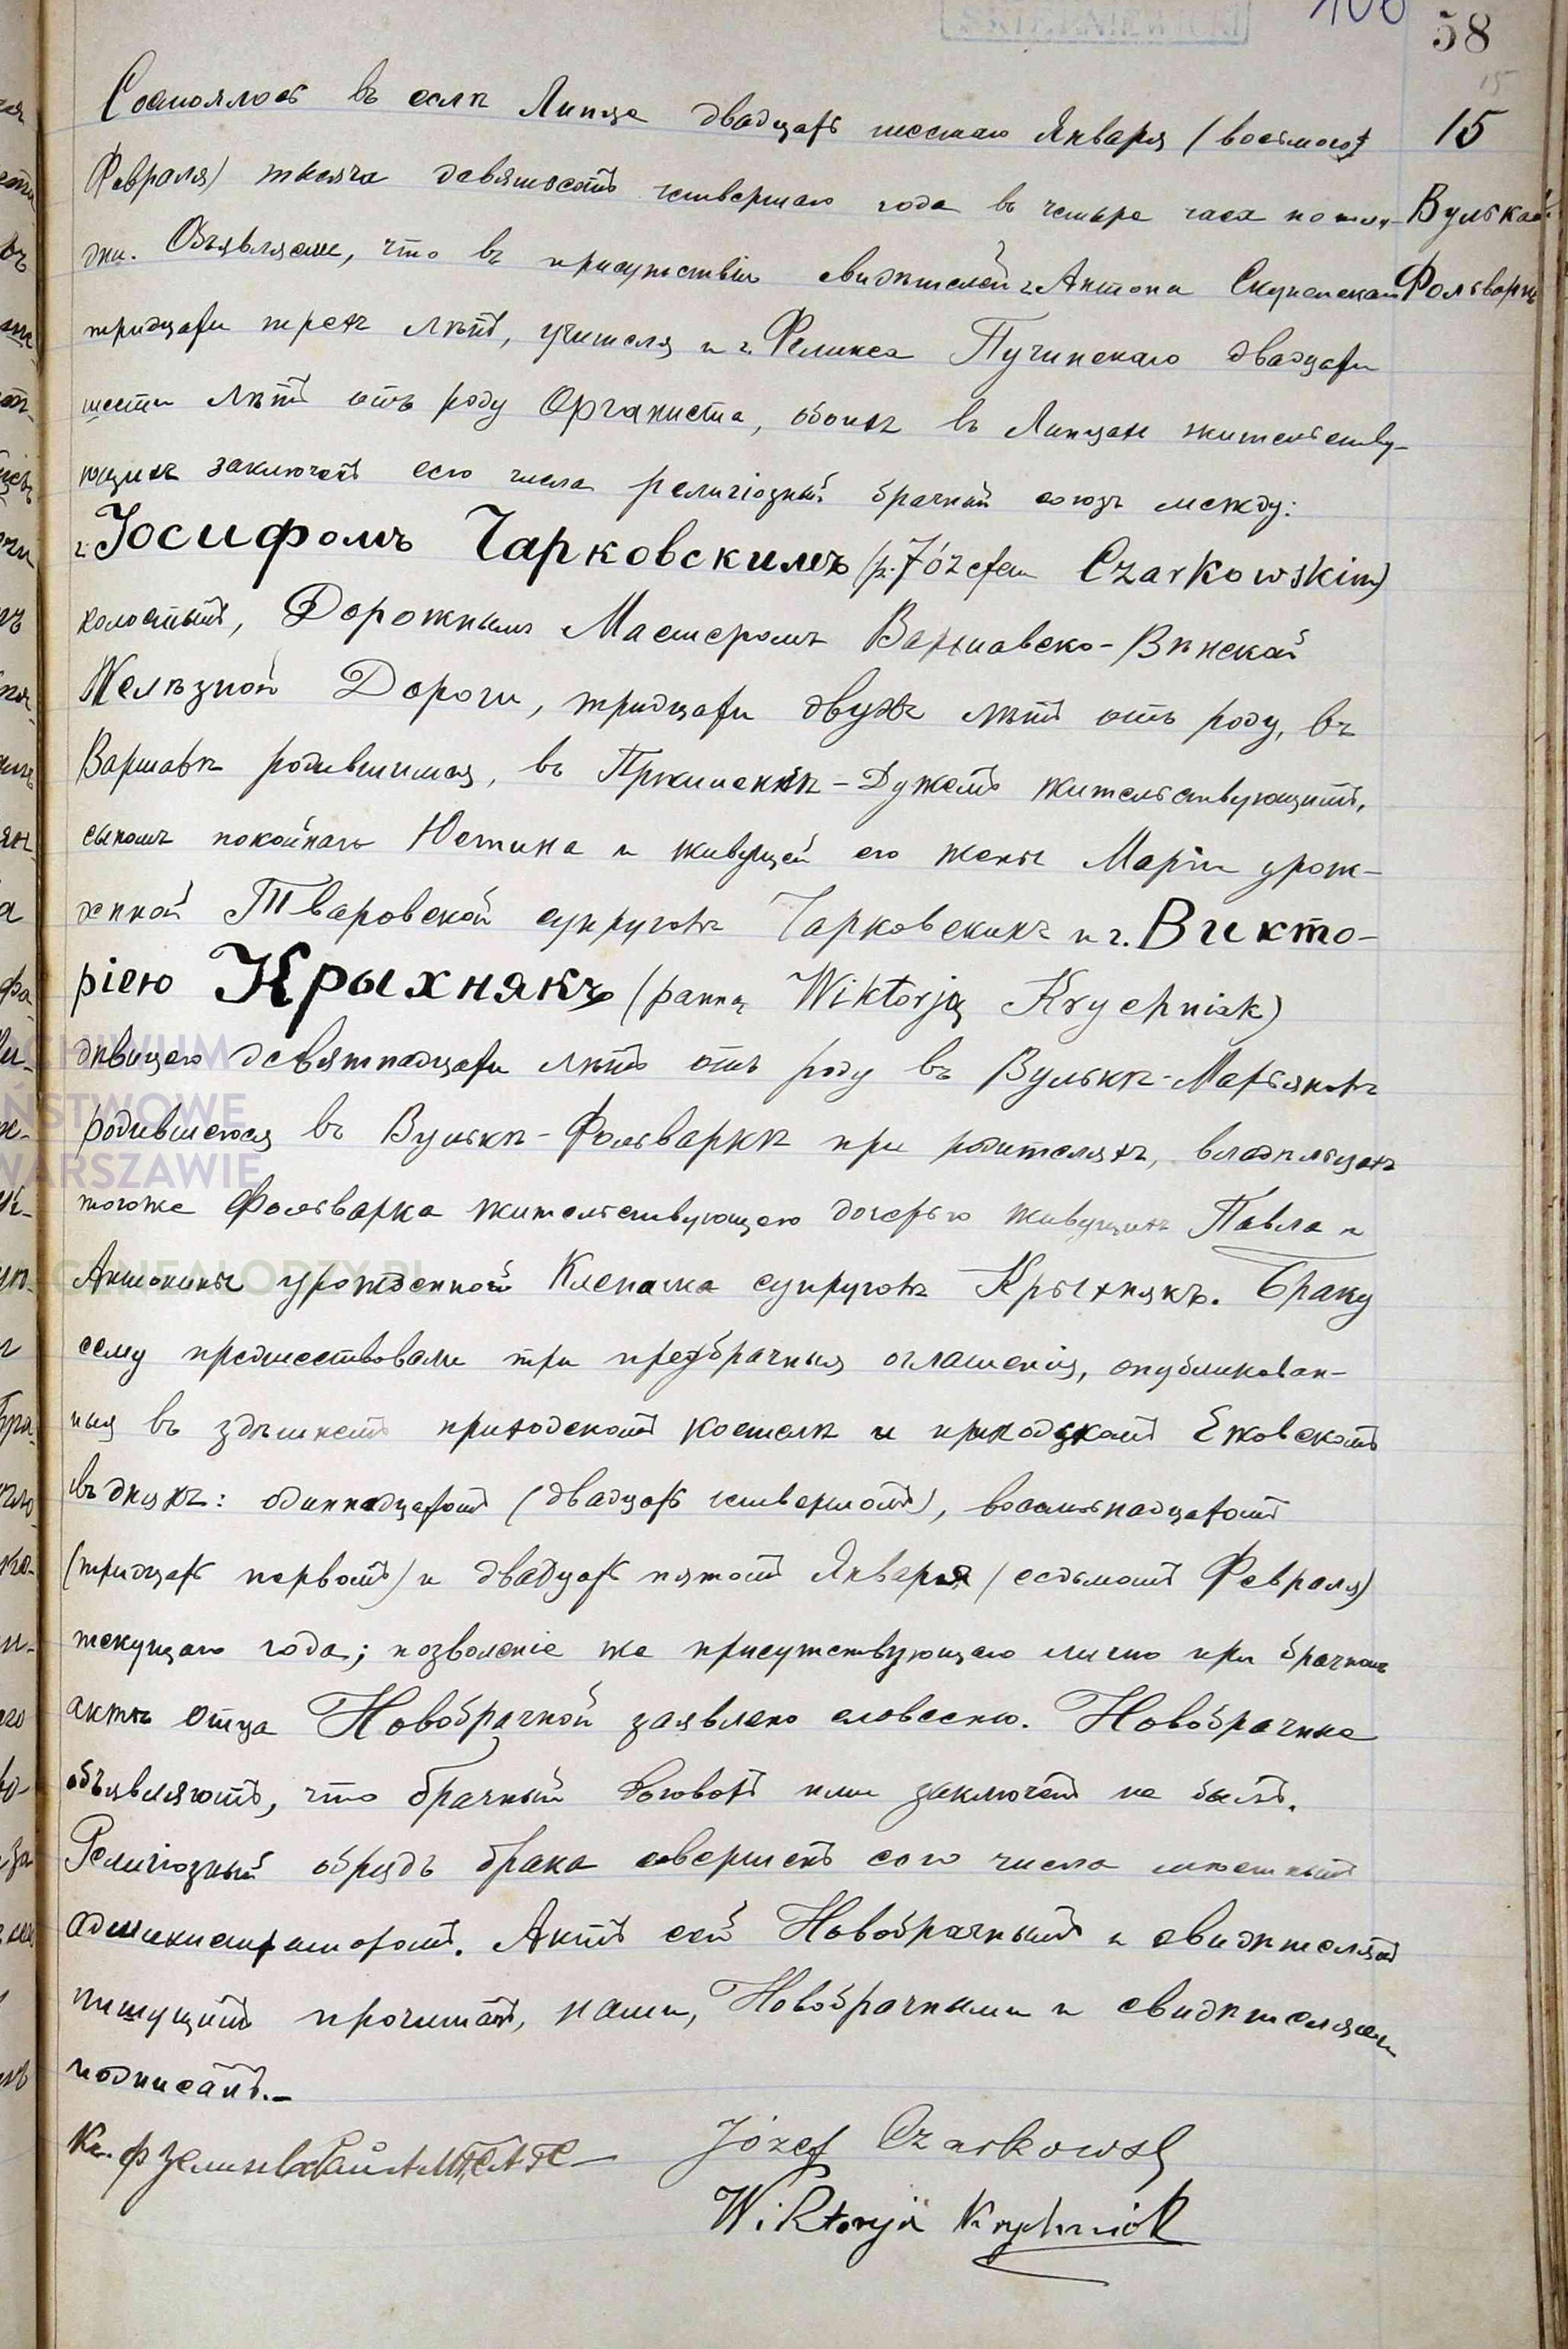 106 58
15
15
Вулька
Фольваркъ
Состоялось въ селѣ Липце двадцать шестаго Января (восьмого
Февраля) тысяча девятьсотъ четвертаго года въ четыре часа пополу-
дни. Объявляемъ, что въ присутствіи свидѣтелей г. Антона
тридцати трехъ лѣтъ, учителя и г. Феликса Пучинскаго двадцати
шести лѣтъ отъ роду Органиста, обоихъ въ Липцахъ жительству-
ющихъ заключенъ сего числа религіозный брачный союзъ между:
г. Іосифомъ Чарковскимъ (p. Józefem Czarkowskim)
холостымъ, Дорожнымъ Мастеромъ Варшавско-Вѣнской
Желѣзной Дороги, тридцати двухъ лѣтъ отъ роду, въ
Варшавѣ родившимся, въ Дужемъ жительствующимъ,
сыномъ покойнаго Юстина и живущей его жены Маріи урож-
денной Тваровской супруговъ Чарковскихъ и г. Викто-
ріею Крыхнякъ (panną Wiktorją Krychniak)
дѣвицею девятнадцати лѣтъ отъ роду въ Вулькѣ-
родившеюся въ Вулькѣ-Фольваркѣ при родителяхъ, владѣльцахъ
тогоже Фольварка жительствующею дочерью живущихъ Павла и
Антонины урожденной супруговъ Крыхнякъ. Браку
сему предшествовали три предбрачныя оглашенія, опубликован-
ныя въ здѣшнемъ приходскомъ костелѣ и приходскомъ Ежовскомъ
въ дняхъ: одиннадцатомъ (двадцать четвертомъ), восемьнадцатомъ
(тридцать первомъ) и двадцать пятомъ Января (седьмомъ Февраля)
текущаго года; позволеніе же присутствующаго лично при брачномъ
актѣ отца Новобрачной заявлено словесно. Новобрачные
объявляютъ, что брачный договоръ ними заключенъ не былъ.
Религіозный обрядъ брака совершенъ сего числа мѣстнымъ
администраторомъ. Актъ сей Новобрачнымъ и свидѣтелямъ
пишущимъ прочитанъ, нами, Новобрачными и свидѣтелями
подписанъ.-
Кс. Ф Józef Czarkowski
Wiktorja Krychniak
ARCHIWUM
PAŃSTWOWE
WARSZAWIE